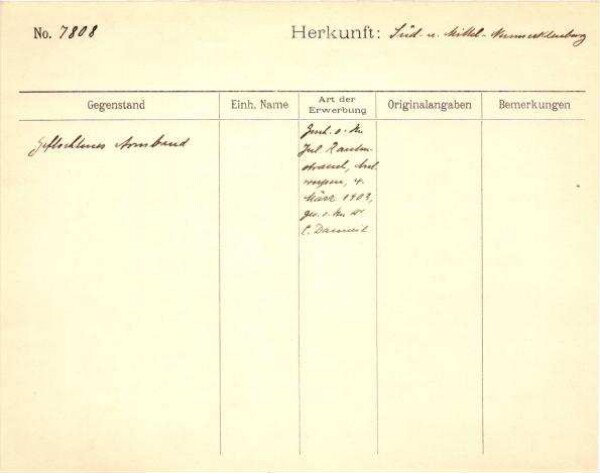 No. 7808
Herkunft: Süd- u. Mittel-Neumecklenburg
Gegenstand
Einh. Name
Art der
Erwerbung
Originalangaben
Bemerkungen
Geflochtenes Armband
Gesch. v. Hn.
Jul.
Ant-
werpen, 4.
März 1909,
ges. v. Hn Dr